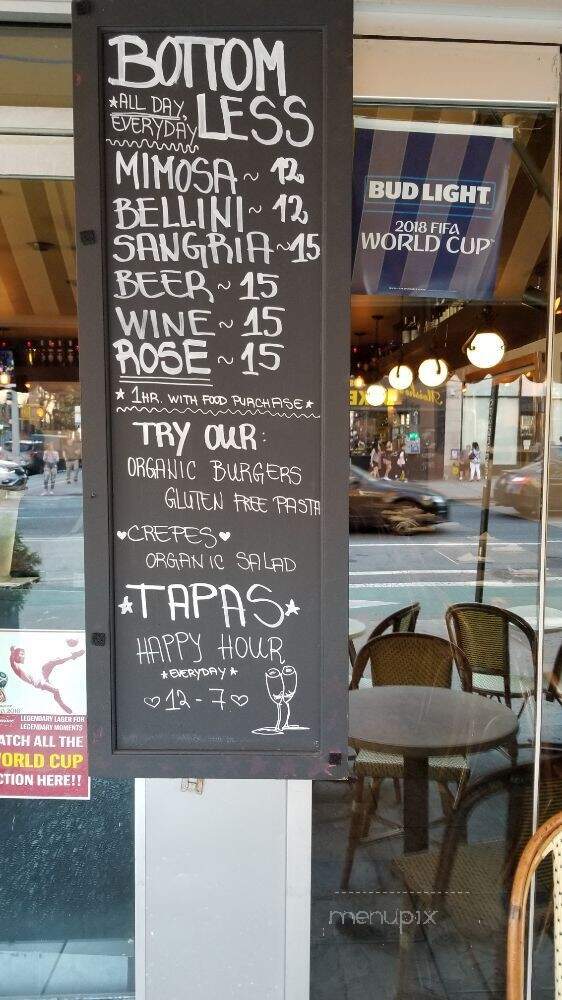 BOTTOM
LESS
★ALL DAY,
EVERYDAY
MIMOSA ~ 12
BELLINI ~ 12
SANGRIA ~ 15
BEER ~ 15
WINE ~ 15
ROSE ~ 15
★ 1HR. WITH FOOD PURCHASE ★
TRY OUR:
ORGANIC BURGERS
GLUTEN FREE PASTA
♥CREPES♥
ORGANIC SALAD
★TAPAS★
HAPPY HOUR
★EVERYDAY★
♡ 12 - 7 ♡
BUD LIGHT
2018 FIFA
WORLD CUP™
LEGENDARY LAGER FOR
LEGENDARY MOMENTS
ATCH ALL THE
WORLD CUP
CTION HERE!!
menupix